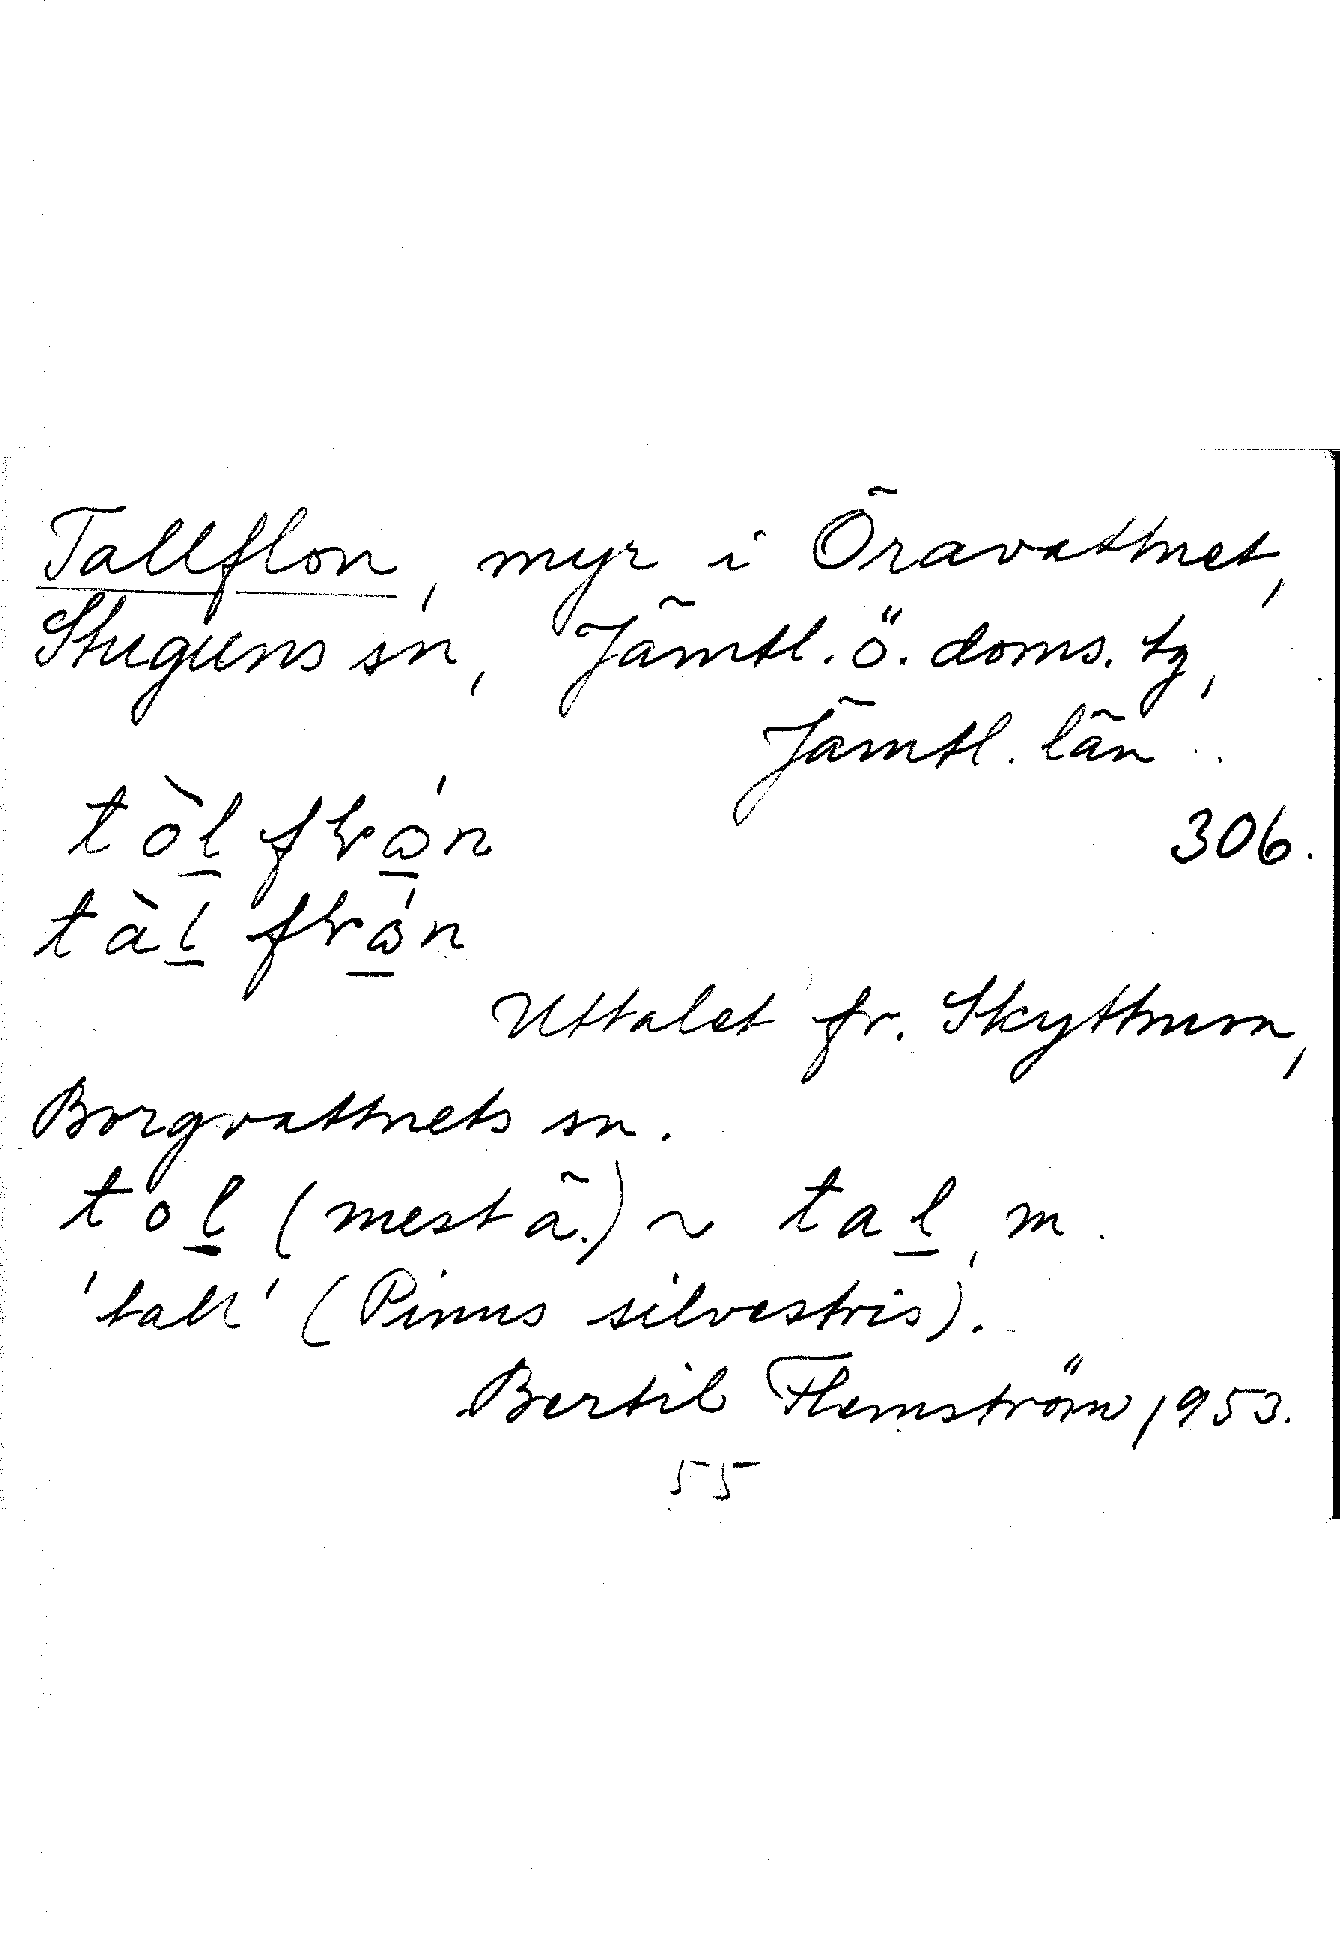 Tallflon, myr i Öravattnet,
Stuguns sn, Jämtl. ö. doms. tg,
Jämtl. län
306.
Uttalet fr. Skyttmon,
Borgvattnets sn.
tol̲ (mest ä.) ~ tal̲, m.
'tall' (Pinus silvestris).
Bertil Flemström, 1953.
55